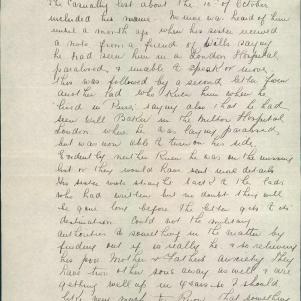 The Casualty list about the 10th of October
included his name. No more was heard of him
until a month ago when his sister received
a note from a friend of Wills saying
he had seen him in a London Hospital
paralysed, & unable to speak or move
This was followed by a second letter from
another lad who knew him when he
lived in saying also that he had
seen Will Baker in the Hospital
London when he was laying paralysed
but was now able to turn on his side
Evidently neither knew he was on the missing
list or they would have sent more details
His sister wrote straight back to the lads
who had written but no doubt they will
be gone long before the letter gets to its
destination Could not the military
authorities do something in the matter by
finding out if it really he & so relieving
his poor Mother & Fathers anxiety They
have two other sons away as well & are
getting well up in years so I should
like very much to know that something